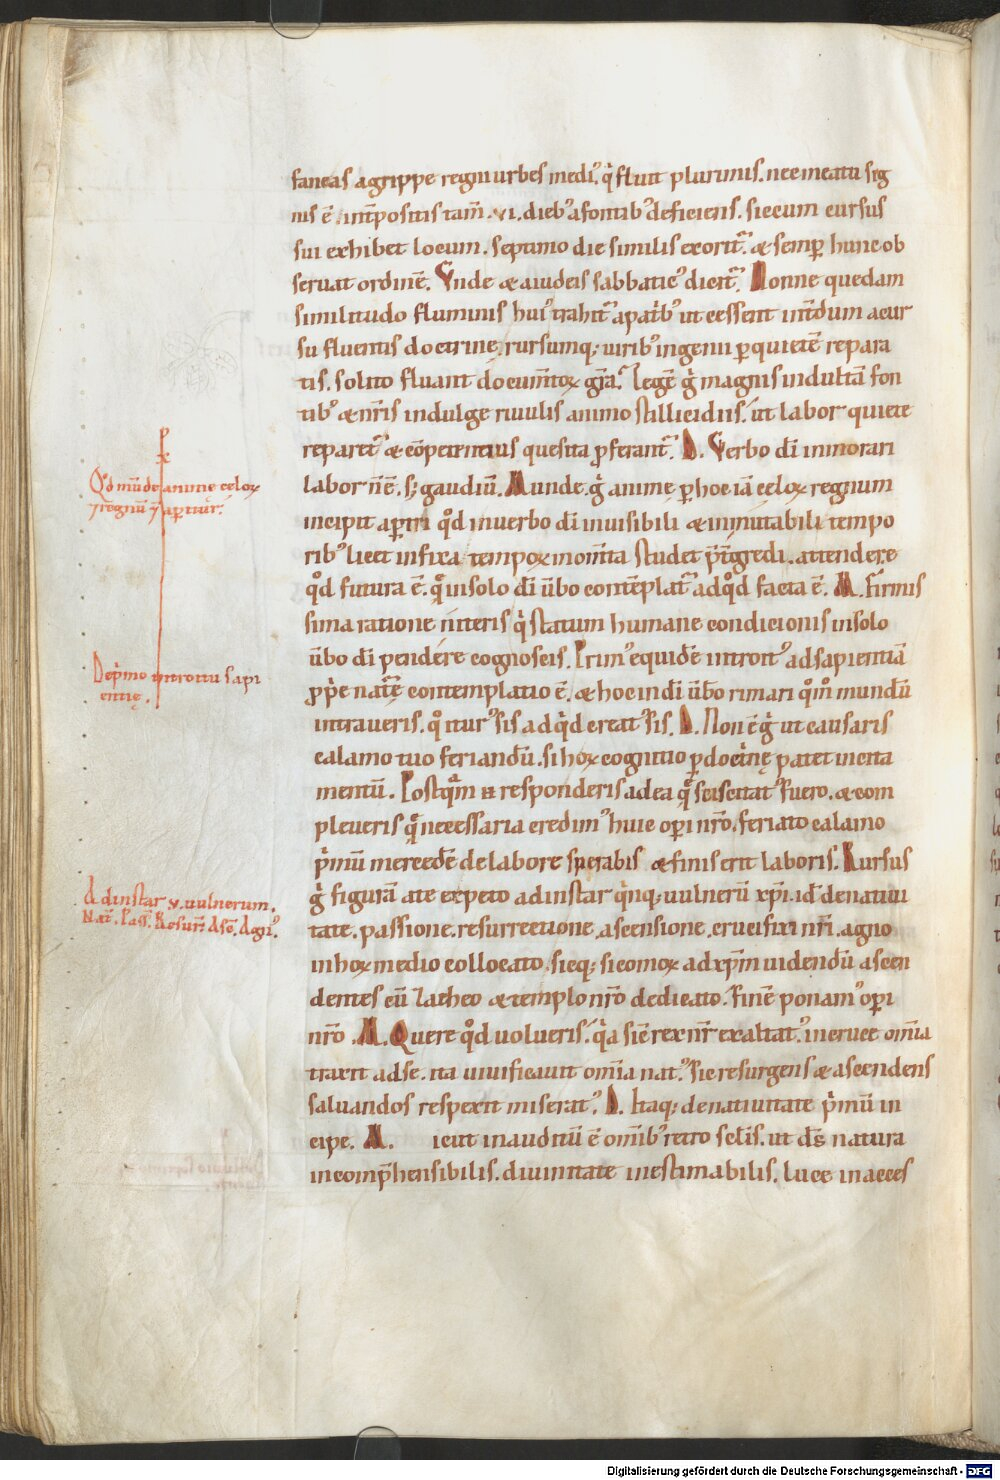 faneas agrippe regni urbes mediꝰ. q̇ fluit plurimis. nec meatu seg
nis ē. int̄positis tam̄ .vi. diebꝰ a fontibꝰ deficiens. siccum cursus
sui exhibet locum. septimo die similis exoritᷓ. & semꝑ hunc ob
seruat ordinē. Vnde & a iudeis sabbaticꝰ dicitᷓ. Nonne quedam
similitudo fluminis huiꝰ trahitᷓ a patribꝰ ut cessent int̄dum a cur
su fluentis doctrinę. rursumq; uiribꝰ ingenii ꝑ quietē repara
tis. solito fluant documtoꝝ gr̄a. Legē g̊ magnis indultā fon
tibꝰ & nr̄is indulge riuulis animo stillicidiis. ut labor quiete
reparetᷓ & cōpetentius quesita ꝓferantᷓ. D. Verbo dī inmorari
labor n̄ ē. s; gaudiū. M unde. g̊ animę ꝑ hoc iā celoꝝ regnum
incipit aꝑiri qd̊ in uerbo dī inuisibili & inmutabili tempo
ribꝰ licet infixa tempoꝝ momta studet p̄t̄gredi. attendere
qd̊ futura ē. qͣ ui solo dī ūbo contēplatᷓ ad qd̊ facta ē. M. Firmis
sima ratione niteris q̇ statum humane condicionis in solo
ūbo dī pendere cognoscis. Primꝰ equidē introitꝰ ad sapientiā
ꝓp̄e natᷓe contemplatio ē. & hoc in dī ūbo rimari qͦm̊ mundū
intraueris. qͦ iturꝰ sis ad qd̊ creatꝰ sis. D. Non ē g̊ ut causaris
calamo tuo feriandū. si hoꝝ cognitio ꝑ doctrinę patet incita
mentū. Postqͣm n̄ responderis ad ea qͣ sciscitatꝰ fuero. & com
pleueris qͣ necessaria credimꝰ huic oꝑi nr̄o. feriato calamo
p̊mū mercedē de labore sperabis & finis erit laboris. Rursus
g̊ figurā a te expeto ad instar qͥnq; uulnerū xp̄i. id ē de natiui
tate. passione. resurrectione. ascensione. crucifixi nr̄i. agno
in hoꝝ medio collocato. sicq; sicomoꝝ ad xp̄m uidendū ascen
dentes cū Zacheo & templo nr̄o dedicato. Finē ponamꝰ oꝑi
nr̄o. M. Quere qd̊ uolueris. qͥa sic̄ rex nr̄ exaltatꝰ in cruce om̄ia
traxit ad se. ita uiuificauit om̄ia natꝰ. sic resurgens & ascendens
saluandos respexit miseratꝰ. D. Itaq; de natiuitate p̊mū in
cipe. M. icut inauditū ē om̄ibꝰ retro sc̄lis. ut ds̄ natura
incomp̄hensibilis. diuinitate inestimabilis. luce inacces
Qd̊ mūdo animę celoꝝ
regnū aꝑitur.
De p̊mo introitu sapi
entię.
Ad instar v. uulnerum.
Nat̄. Pass̄. Resurr̄. Asc̄. Agnꝰ.
Digitalisierung gefördert durch die Deutsche Forschungsgemeinschaft - DFG